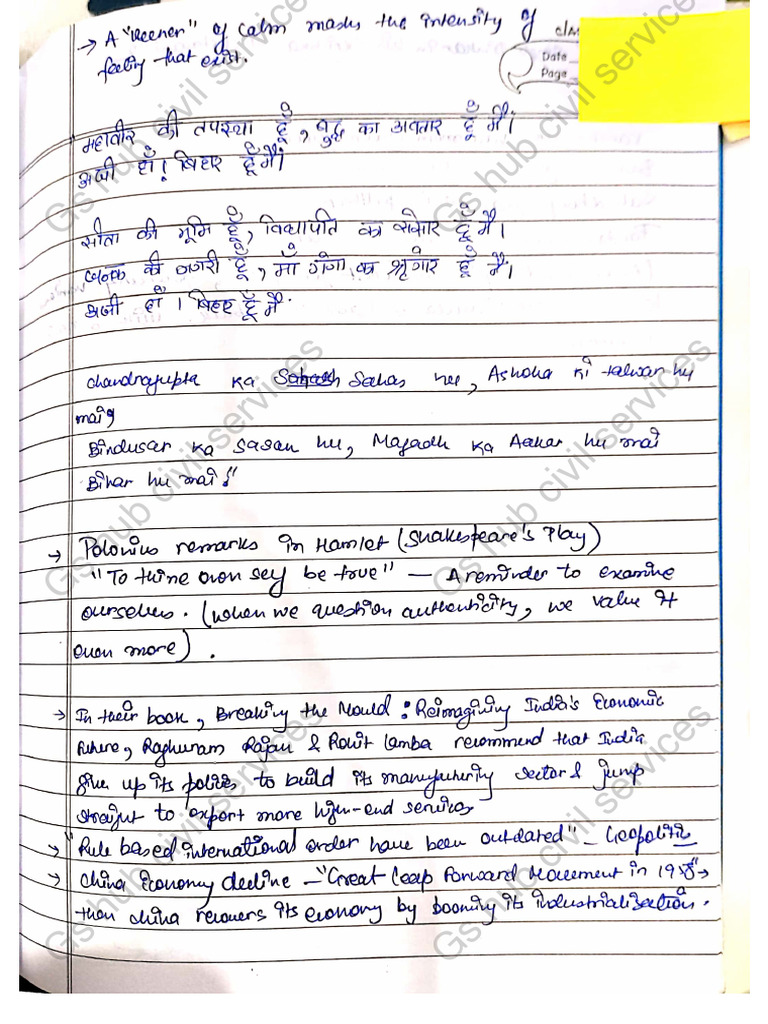 → A "veener" of calm masks the intensity of
feeling that exist.
Date
Page
महावीर की तपस्या हूँ, बुद्ध का अवतार हूँ मैं।
अजी हाँ! बिहार हूँ मैं।
सीता की भूमि हूँ, विद्यापति का संसार हूँ मैं।
जनक की नगरी हूँ, माँ गंगा का श्रृंगार हूँ मैं।
अजी हाँ । बिहार हूँ मैं.
Chandragupta ka Sahas hu, Ashoka ki talwar hu
mai
Bindusar ka sasan hu, Magadh ka Aakar hu mai
Bihar hu mai !"
→ Polonius remarks in Hamlet (Shakespeare's Play)
"To thine own self be true" — A reminder to examine
ourselves. (when we question authenticity, we value it
even more) .
→ In their book, Breaking the Mould : Reimagining India's Economic
Future, Raghuram Rajan & Rohit Lamba recommend that India
give up its policies to build its manufacturing sector & jump
straight to export more high-end services
→ "Rule based international order have been outdated" – Geopolitic
→ China Economy decline – "Great Leap Forward Movement in 1958" →
then China recovers its economy by booming its industrialisation.
Gs hub civil services
Gs hub civil services
Gs hub civil services
Gs hub civil services
Gs hub civil services
Gs hub civil services